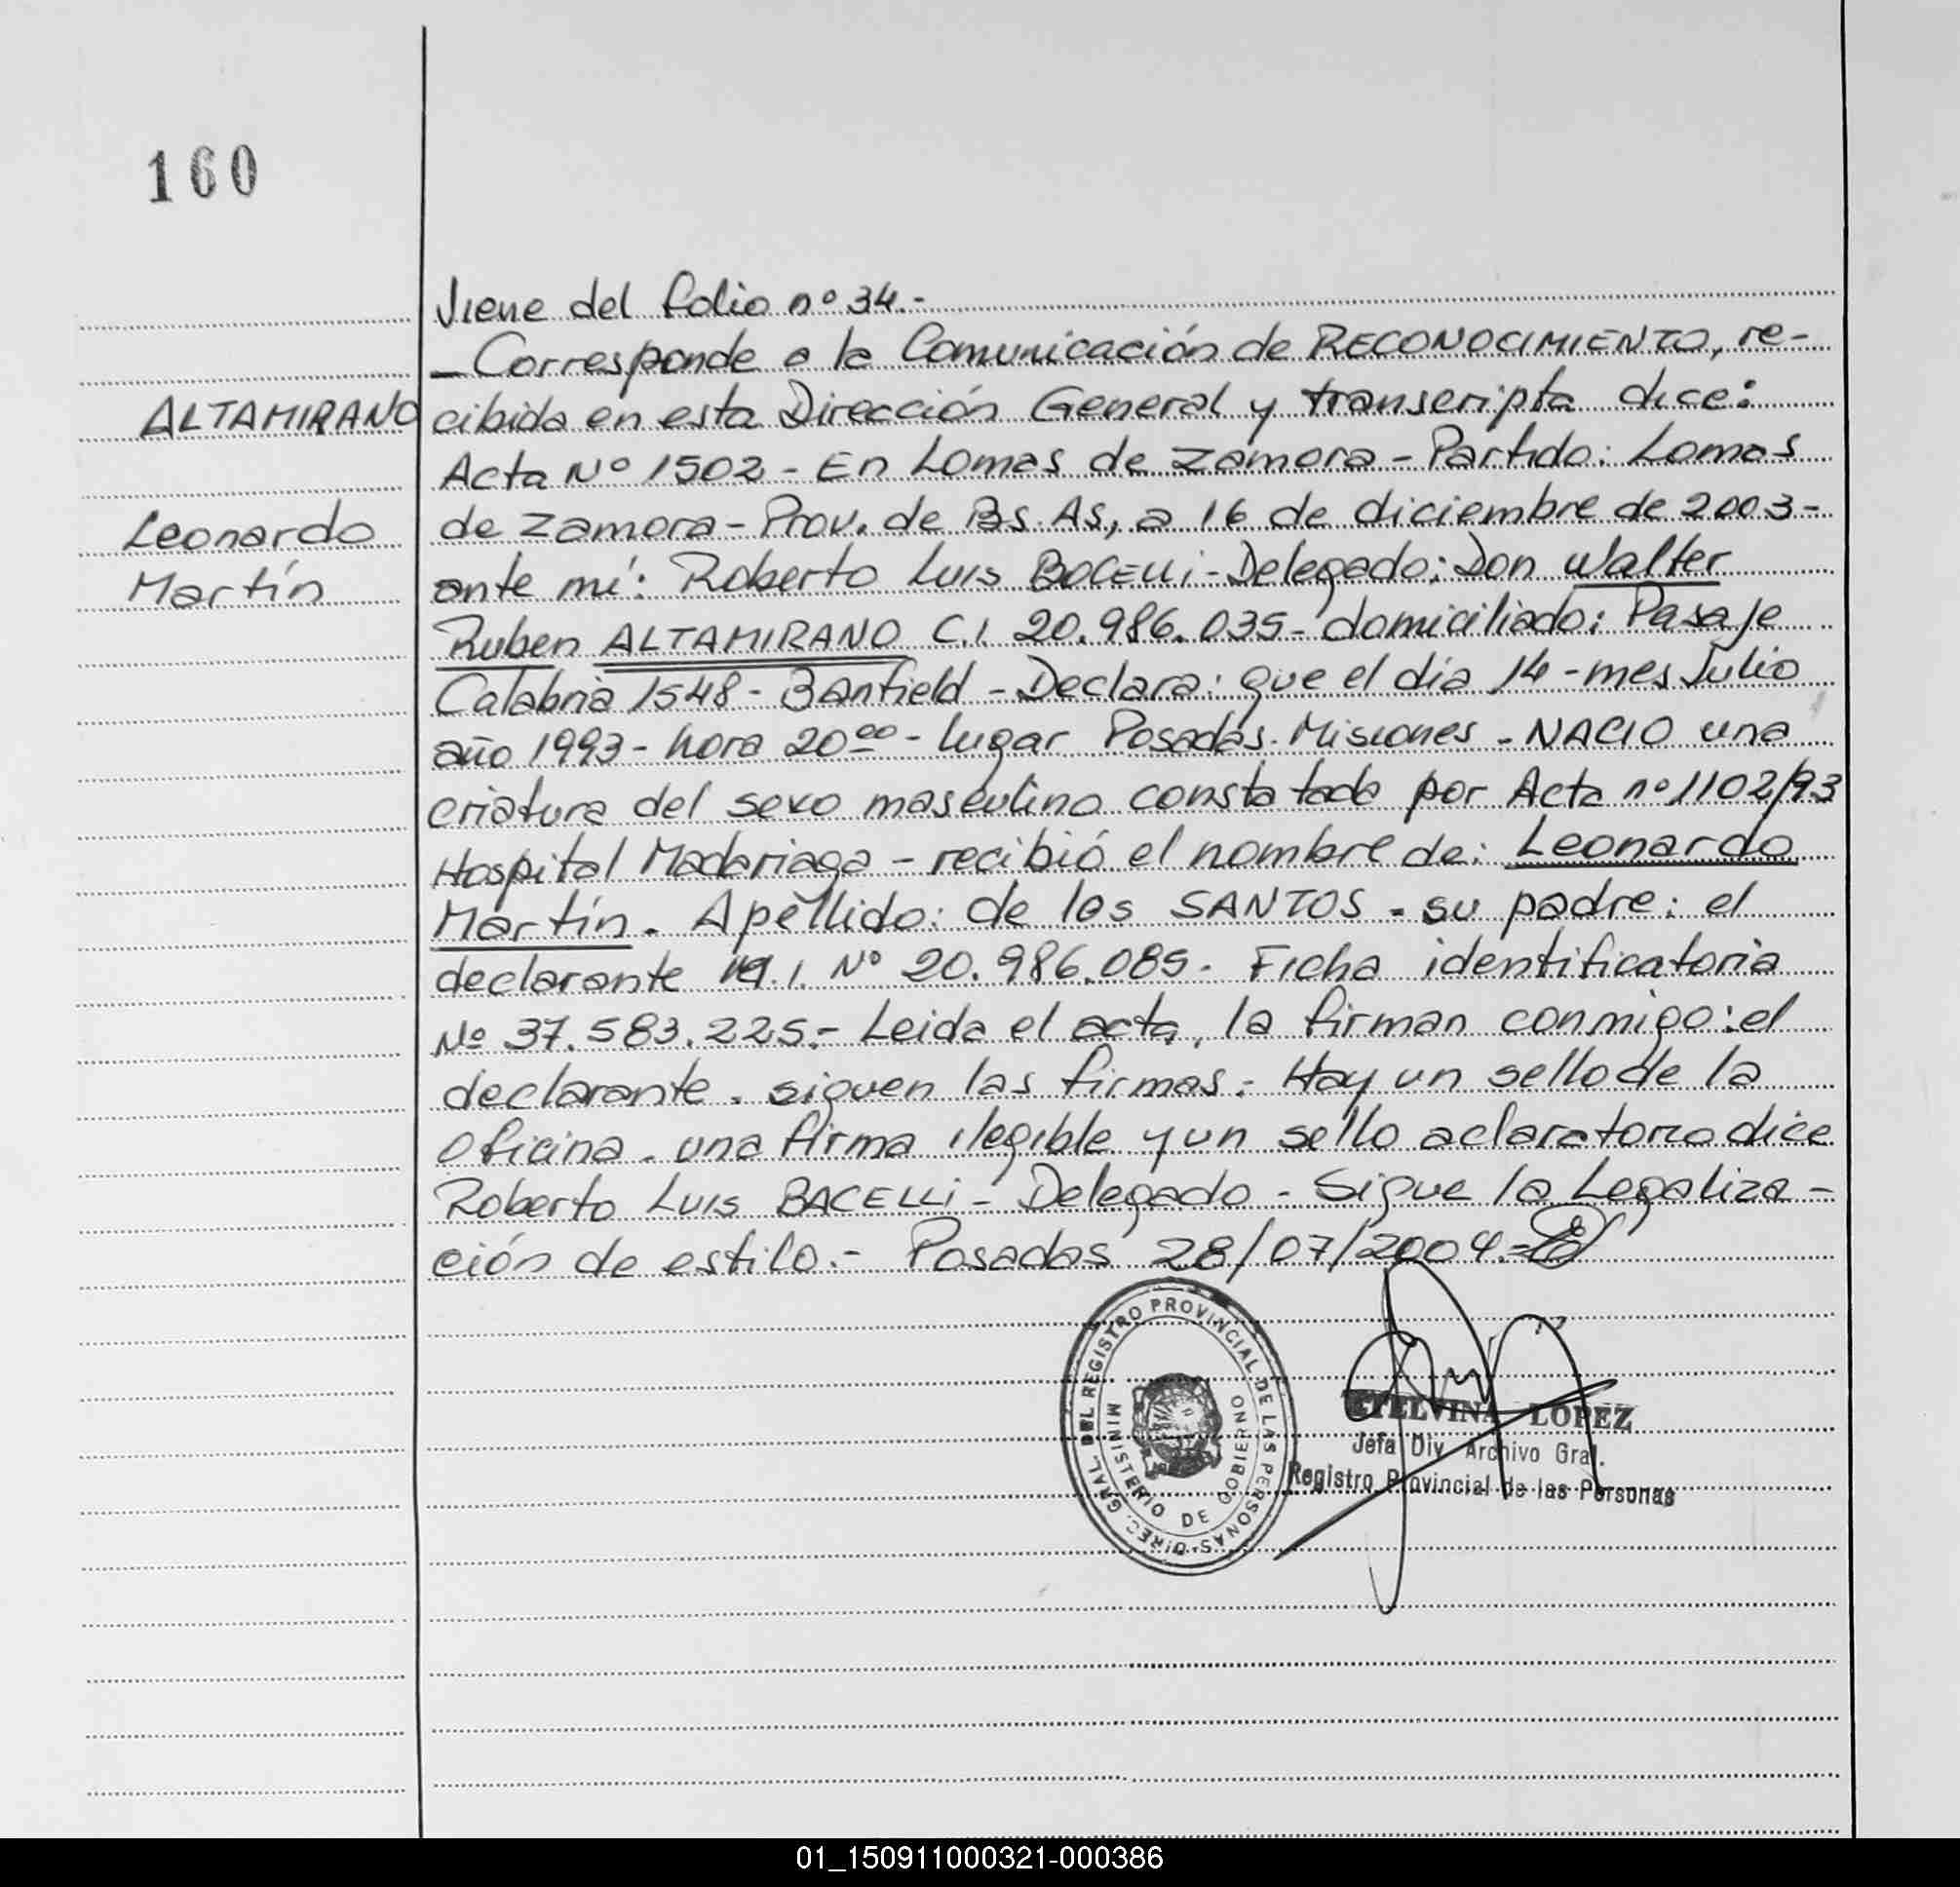 160
Viene del folio nº 34.-
- Corresponde a la Comunicación de RECONOCIMIENTO, re-
ALTAMIRANO
cibida en esta Dirección General y transcripta dice:
Acta Nº 1502 - En Lomas de Zamora - Partido: Lomas
Leonardo
de Zamora - Prov. de Bs. As, a 16 de diciembre de 2003-
Martín
ante mí: Roberto Luis BOCELLi - Delegado: Don Walter
Ruben ALTAMIRANO C.I. 20.986.035 - domiciliado: Pasaje
Calabria 1548 - Banfield - Declara: que el día 14 - mes Julio
año 1993 - hora 20 00 - lugar Posadas. Misiones - NACIO una
criatura del sexo masculino constatado por Acta nº 1102/93
Hospital Madariaga - recibió el nombre de: Leonardo
Martín. Apellido: de los SANTOS - su padre: el
declarante I. Nº 20.986.085. Ficha identificatoria
Nº 37.583.225.- Leida el acta, la firman conmigo: el
declarante. siguen las firmas. Hay un sello de la
Oficina - una firma ilegible y un sello aclaratorio dice
Roberto Luis BACELLi - Delegado - Sigue la Legaliza-
ción de estilo.- Posadas 28/07/2004.-
DIREC. GRAL. DEL REGISTRO PROVINCIAL DE LAS PERSONAS
MINISTERIO DE GOBIERNO
ETELVINA LOPEZ
Jefa Div. Archivo Gral.
Registro Provincial de las Personas
01_150911000321-000386